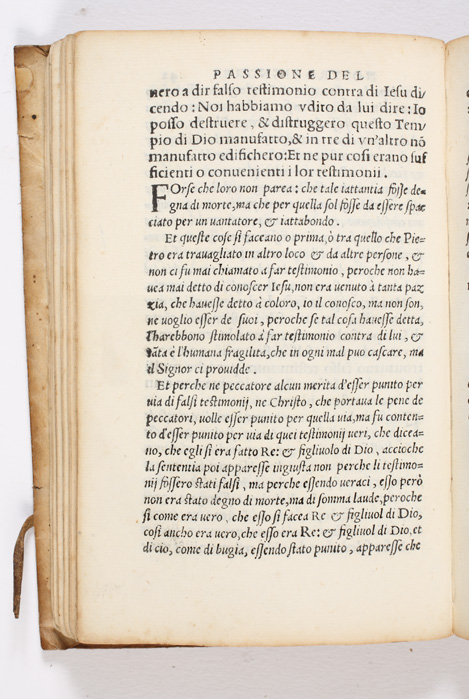 PASSIONE DEL
nero a dir falso testimonio contra di Iesu di/
cendo : Noi habbiamo vdito da lui dire : Io
posso destruere , & distruggero questo Tem/
pio di Dio manufatto, & in tre di vn'altro nõ
manufatto edifichero : Et ne pur cosi erano suf
ficienti o conuenienti i lor testimonii .
FOrse che loro non parea : che tale iattantia fosse de=
gna di morte, ma che per quella sol fosse da essere spac
ciato per un uantatore, & iattabondo .
Et queste cose si faceano o prima, ò tra quello che Pie=
tro era trauagliato in altro loco & da altre persone , &
non ci fu mai chiamato a far testimonio , peroche non ha=
uea mai detto di conoscer Iesu, non era uenuto à tanta paz
zia, che hauesse detto à coloro, io il conosco, ma non son,
ne uoglio esser de suoi , peroche se tal cosa hauesse detta,
l'harebbono stimolato à far testimonio contra di lui , &
tãta è l'humana fragilita, che in ogni mal puo cascare, ma
il Signor ci prouidde .
Et perche ne peccatore alcun merita d'esser punito per
uia di falsi testimonij, ne Christo , che portaua le pene de
peccatori, uolle esser punito per quella uia, ma fu conten=
to d'esser punito per uia di quei testimonij ueri, che dicea=
no, che egli si era fatto Re : & figliuolo di Dio , accioche
la sententia poi apparesse ingiusta non perche li testimo=
nij fossero stati falsi , ma perche essendo ueraci , esso però
non era stato degno di morte, ma di somma laude, peroche
si come era uero , che esso si facea Re & figliuol di Dio,
cosi ancho era uero, che esso era Re : & figliuol di Dio, et
di cio, come di bugia, essendo stato punito , apparesse che